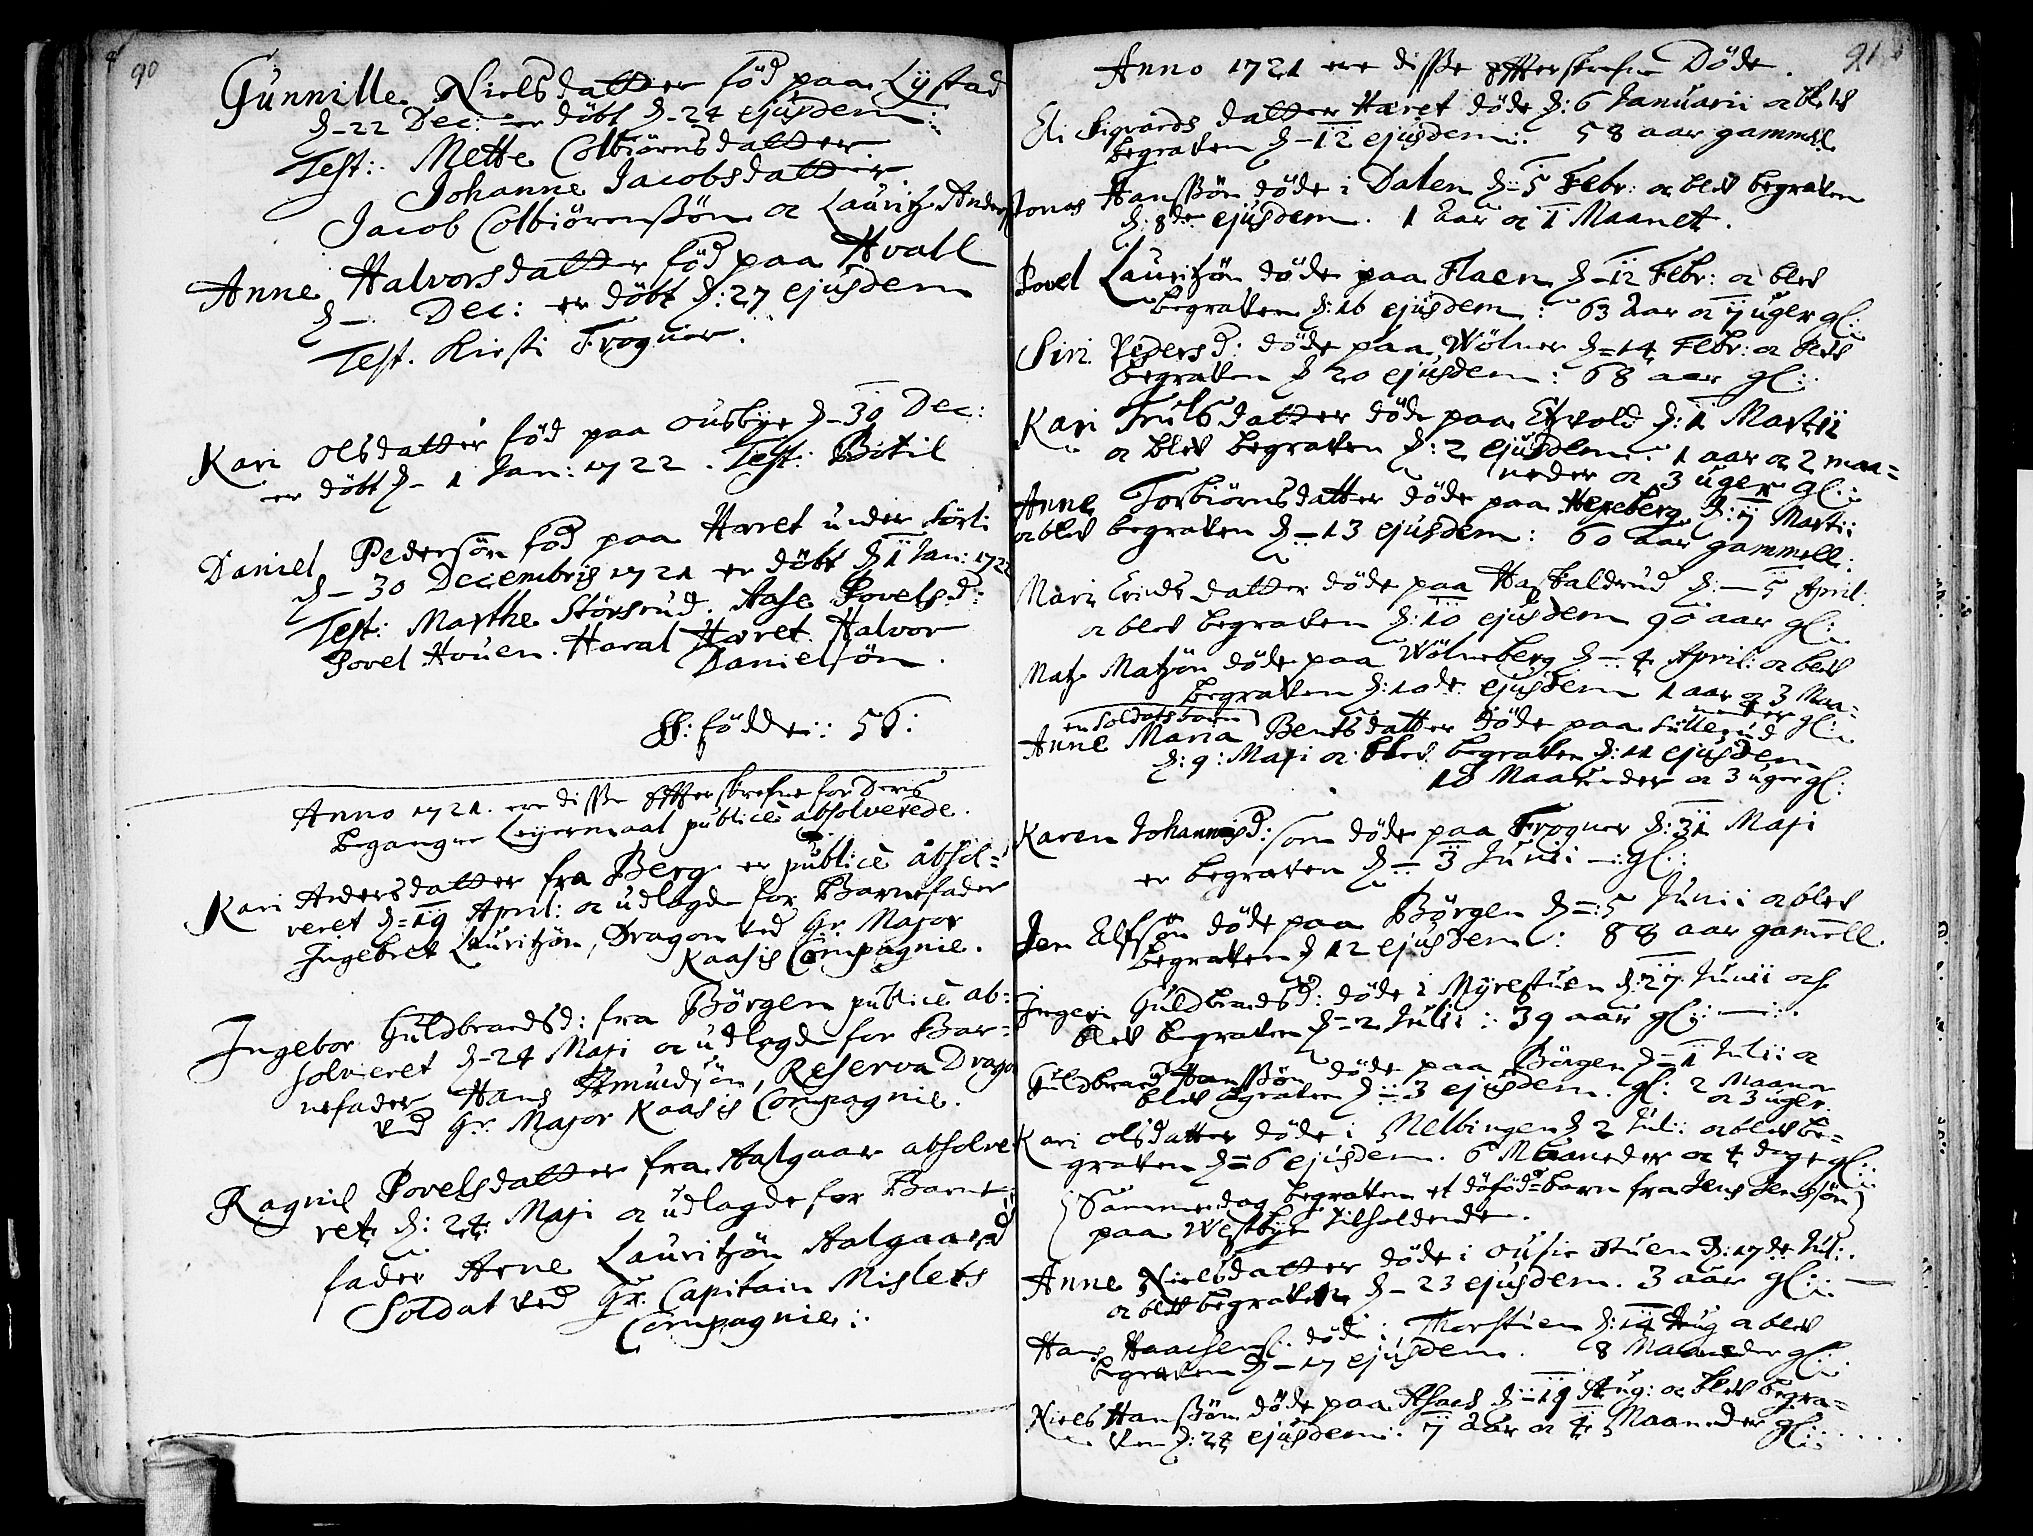 90
Gunnille Nielsdatter fød paa Lystad
d-22 Dec: er døbt d-24 ejusdem:
Test: Mette Colbiørnsdatter
Johanne Jacobsdatter
Jacob Colbiørensøn oc Lauritz Anders
Anne Halvorsdatter fød paa Hvall
d- Dec: er døbt d:27 ejusdem
Test. Kirsti Frogner.
Kari Olsdatter fød paa Ousbye d-30 Dec:
er døbt d- 1 Jan: 1722. Test: Botil
Daniel Pedersøn fød paa Haret under
d- 30 Decembris 1721 er døbt d 1 Jan: 1722
Test: Marthe Størsrud. Aase Povelsd:
Povel Houen. Haral Haret. Halvor
Danielsøn.
fødde: 56:
Anno 1721. ere disse Effterskrefne for Deris
begangne Leyermaal publicè absolverede.
Kari Andersdatter fra Berg er publicè absol=
veret d=19 April: oc udlagde for Barnefader
Ingebret Lauritzøn, Dragon ved Hr. Major
Kaasis Compagnie.
Ingebor Guldbrandsd: fra Børgen publicè ab=
solveret d-24 Maji oc udlagde for Bar=
nefader Hans Amundsøn, Reserva Drago
ved Hr. Major Kaasis Compagnie.
Ragnil Povelsdatter fra Aalgaar absolve
ret d: 24 Maji oc udlagde for Barne
fader Arne Lauritzøn Aalgaard
Soldat ved Hr. Capitain Mislets
Compagnie:
91
Anno 1721 ere disse Effterskrefne Døde.
Eli Sigvards datter Haret døde d: 6 Januarii oc blef
begraven d-12 ejusdem: 58 aar gammell
Jonas Hanssøn døde i Dalen d-5 Febr: oc blef begraven
d: 8de ejusdem. 1 Aar oc 1 Maanet.
Povel Lauritzøn døde paa Flaen d-12 Febr: oc blef
begraven d:16 ejusdem: 63 Aar oc 7 uger gl:
Siri Pedersd: døde paa Wølner d=14 Febr: oc blef
begraven d 20 ejusdem: 68 aar gl:
Kari Trulsdatter døde paa Egvold d: 1 Martii
oc blef begraven d: 2 ejusdem: 1 aar oc 2 maa=
neder oc 3 uger gl:
Anne Torbiørnsdatter døde paa Hexeberg d: 7 Martii
oc blef begraven d-13 ejusdem: 60 Aar gammell:
Mari datter døde paa Haffaldrud d:- 5 April:
oc blef begraven d:10 ejusdem 90 aar gl:
Matz Matzøn døde paa Wølneberg d-4 April: oc blef
begraven d:10de ejusdem 1 aar oc 3 Maa=
neder gl:
en Soldats barn
Anne Maria Bentsdatter døde paa Lutterud
d: 9: Maji oc blef begraven d:11 ejusdem
18 Maaneder oc 3 uger gl:
Karen Johannesd: som døde paa Frogner d: 31 Maji
er begraven d- 3 Junii -:gl:
Jen Elfsøn døde paa Børgen d=5 Junii oc blef
begraven d 12 ejusdem: 88 aar gamell.
Ingeri Guldbrandsd: døde i Myrestuen d:27 Junii och
blef begraven d=2 Julii: 39 aar gl:
Guldbrand Hanssøn døde paa Børgen d=1 Julii oc
blef begraven d= 3 ejusdem. gl: 2 Maaner
oc 3 uger.
Kari Olsdatter døde i Melbingen d 2 Jul: oc blef be=
graven d=6 ejusdem. 6 Maaneder oc 4 dage gl:
Sammedag begraven et døfød=barn fra Jens Jenssøn
paa Westbye tilholdende.
Anne Nielsdatter døde i stuen d:17de Jul:
oc blef begraven d-23 ejusdem. 3 aar gl:
Hans døde i Thorstuen d:14 Aug oc blef
begraven d-17 ejusdem. 8 Maaneder gl:
Niels Hanssøn døde paa d-19 Aug: oc blef begra=
ven d:24 ejusdem: 7 Aar oc 4 Maaneder gl: